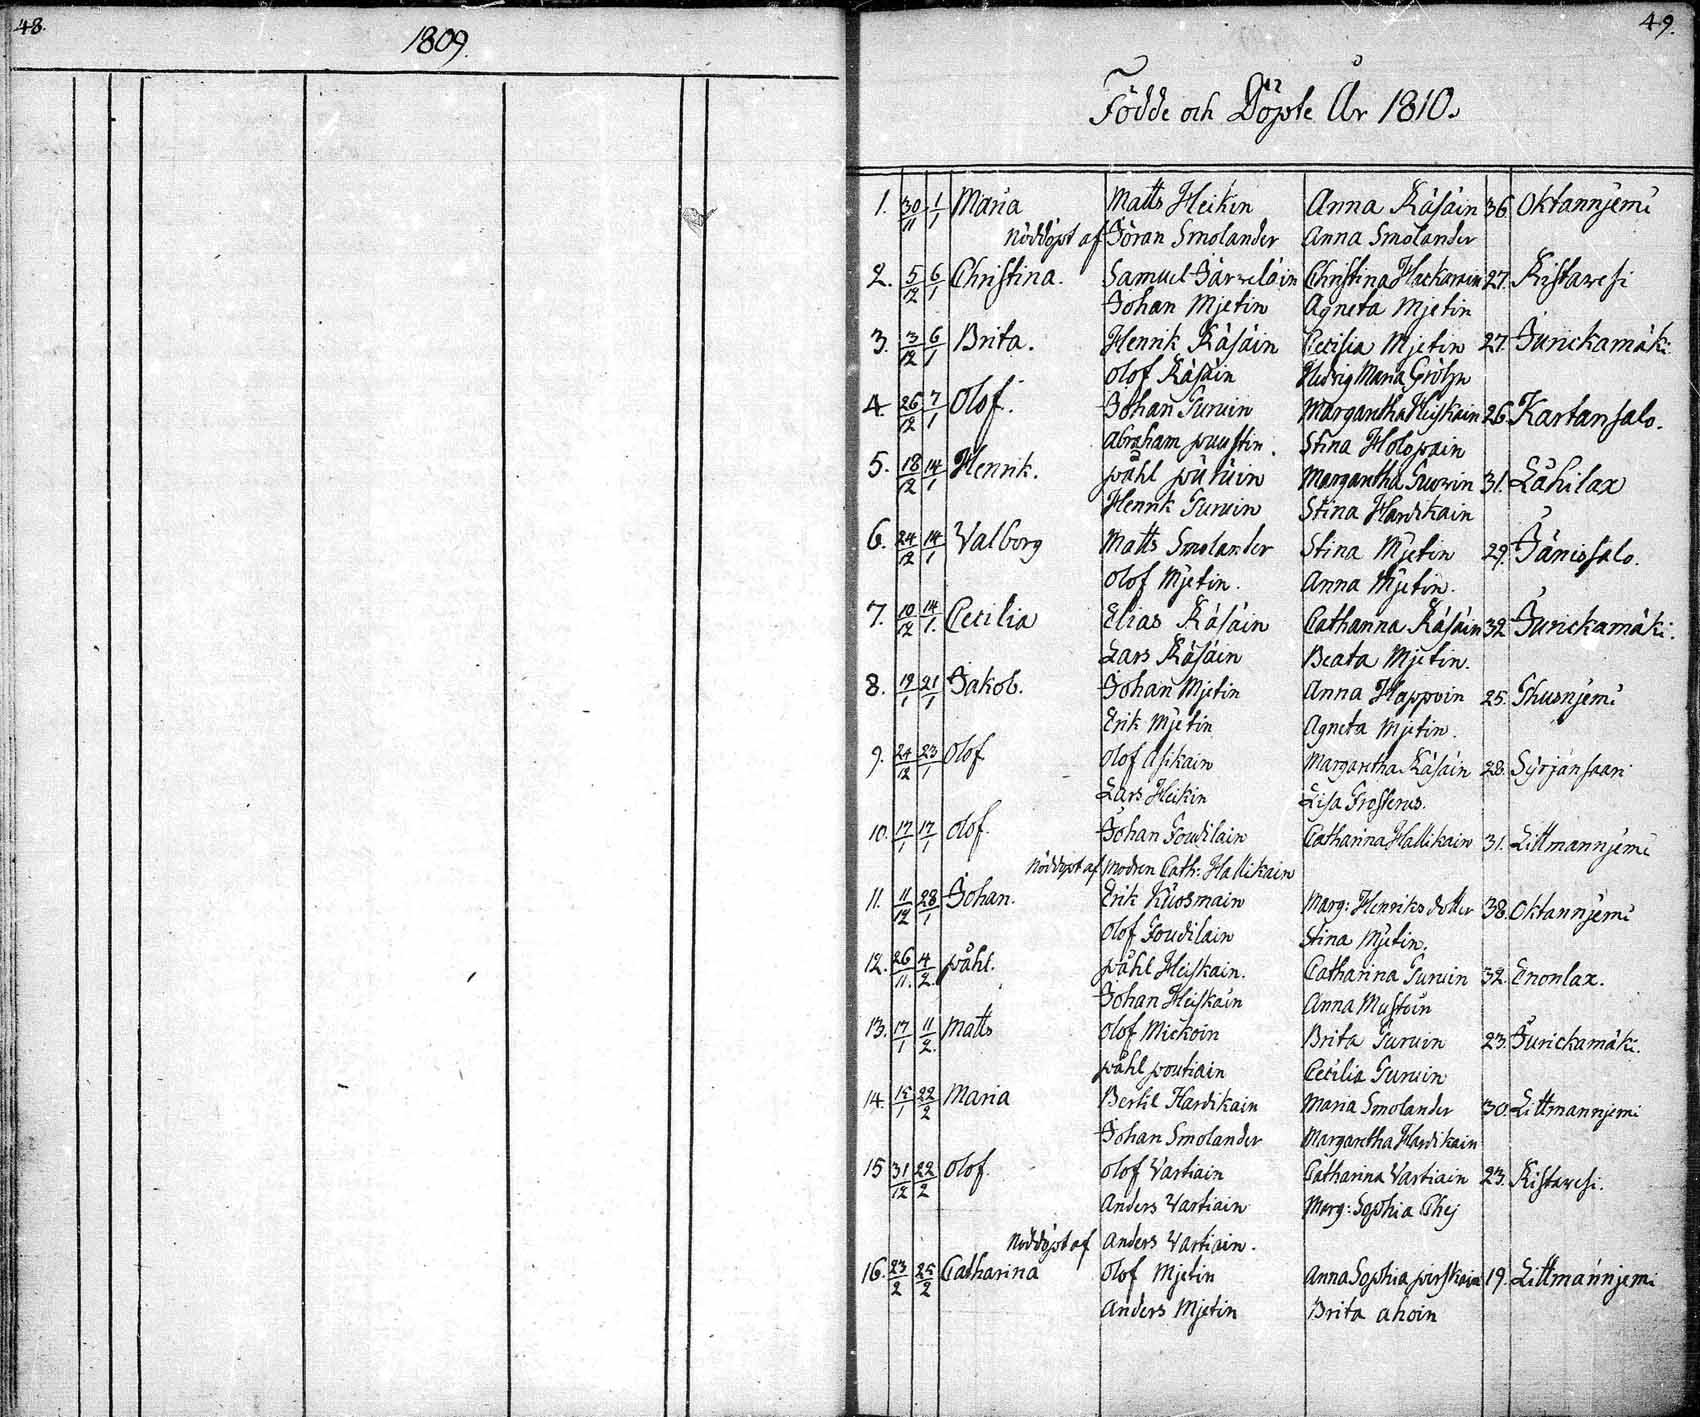 48.
1809.
49.
Födde och Döpte År 1810.
1. 30/11 1/1 Maria Matts Heikin Anna Räsäin 36. Oktannjemi
Nöddöpt af Jöran Smolander Anna Smolander
2. 5/12 6/1 Christina. Samuel Järveläin Christina Hackarain 27. Ristavesi
Johan Mjetin Agneta Mjetin
3. 3/12 6/1 Brita. Henrik Räsäin Cecilia Mjetin 27. Jurickamäki
Olof Räsäin Hedvig Maria
4. 26/12 7/1 Olof. Johan Turuin Margaretha Heiskain 26. Kartansalo.
Abraham Puustin. Stina Holopain
5. 18/12 14/1 Henrik. Påhl Margaretha Turuin 31. Lähilax
Henrik Turuin Stina Hardikain
6. 24/12 14/1 Valborg Matts Smolander Stina Mjetin 29. Jänissalo.
Olof Mjetin. Anna Mjetin.
7. 10/12 14/1. Cecilia Elias Räsäin Catharina Räsäin 32 Jurickamäki.
Lars Räsäin Beata Mjetin.
8. 19/1 21/1 Jakob. Johan Mjetin Anna Happoin 25.
Erik Mjetin Agneta Mjetin.
9. 24/12 23/1 Olof Olof Asikain Margaretha Räsäin 28. Syrjänsaari
Lars Heikin Lisa Froserus.
10. 17/1 17/1 Olof. Johan Toudilain Catharina Hallikain 31. Littmannjemi
Nöddöpt af Modren Cath: Hallikain
11. 11/12 28/1 Johan. Erik Kuosmain Marg: Henriksdotter 38. Oktannjemi
Olof Toudilain Stina Mjetin.
12. 26/11. 4/2. Påhl. Påhl Heiskain. Catharina Turuin 32. Enonlax.
Johan Heiskain Anna Mustoin
13. 17/1 11/2. Matts Olof Mickoin Brita Turuin 23. Jurickamäki.
Påhl Poutiain Cecilia Turuin
14. 15/1 22/2 Maria Bertil Hardikain Maria Smolander 30. Littmannjemi
Johan Smolander Margaretha Hardikain
15 31/12 22/2 Olof. Olof Vartiain Catharina Vartiain 23. Ristavesi.
Anders Vartiain Marg: Sophia
Nöddöpt af Anders Vartiain.
16. 23/2 25/2 Catharina Olof Mjetin Anna Sophia Pirskain 19. Littmannjemi
Anders Mjetin Brita Ahoin